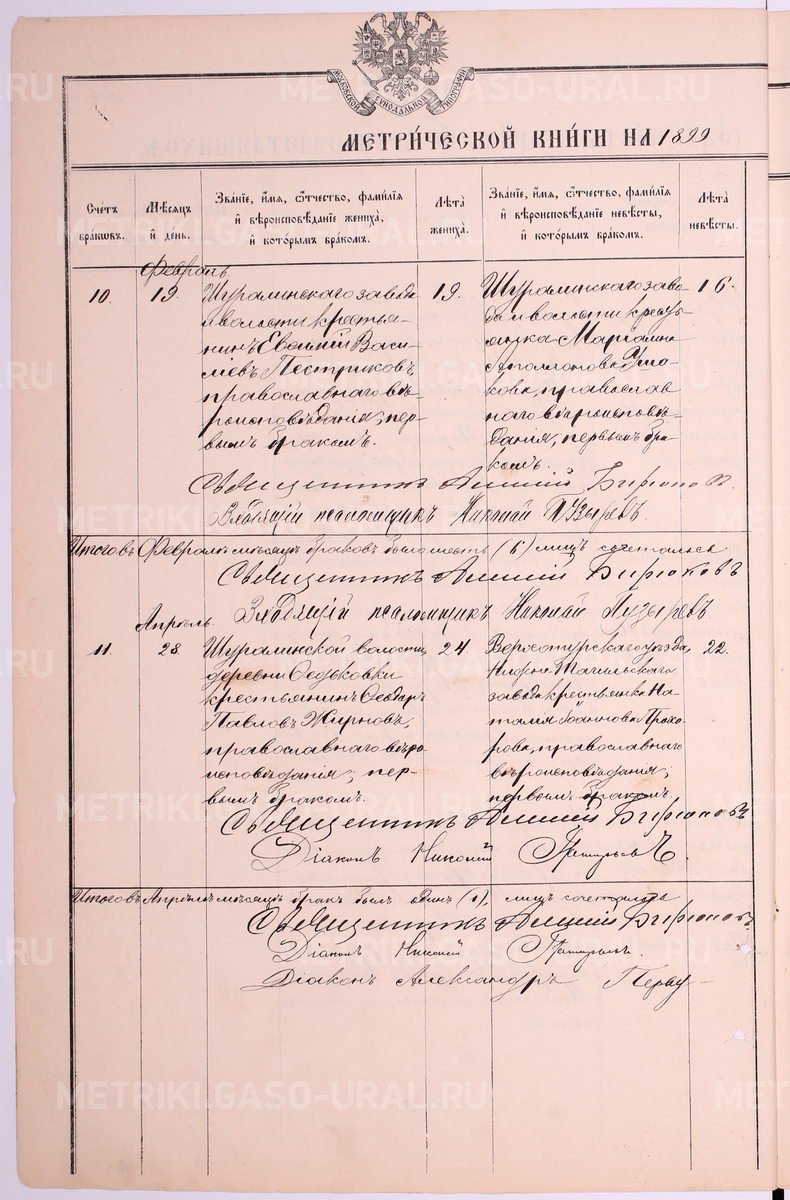 МОСКОВСКОЙ СѴНОДАЛЬНОЙ ТИПОГРАФІИ
МЕТРИ́ЧЕСКОЙ КНИ́ГИ НА 1899
Сче́тъ бра́кωвъ.
Мѣ́сяцъ и҆ де́нь.
Зва́нїе, и҆́мя, ѻ҆́тчество, фами́лїя
и҆ вѣроисповѣ́данїе жениха̀,
и҆ кото́рымъ бра́комъ.
Лѣ́та жениха̀.
Зва́нїе, и҆́мя, ѻ҆́тчество, фами́лїя
и҆ вѣроисповѣ́данїе невѣ́сты,
и҆ кото́рымъ бра́комъ.
Лѣ́та невѣ́сты.
Февраль
10.
19.
Шуралинскаго завода
и волости крестья-
нинъ Евѳимій Васи-
льевъ Пестриковъ,
православнаго вѣ-
роисповѣданія, пер-
вымъ бракомъ.
19.
Шуралинскаго заво-
да и волости кресть-
янка
Аполлонова
кова, православ
наго вѣроисповѣ-
данія, первымъ бра-
комъ.
16.
Священникъ Алексій Бирюковъ.
псаломщикъ Николай Пузыревъ.
Итого въ Февралѣ мѣсяцѣ браковъ было шесть (6) лицъ сочеталось
Священникъ Алексій Бирюковъ
псаломщикъ Николай Пузыревъ
Апрѣль.
11.
28.
Шуралинской волости,
деревни Ѳедьковки
крестьянинъ Ѳеодоръ
Павловъ Жирновъ,
православнаго вѣро
исповѣданія; пер-
вымъ бракомъ.
24.
Верхотурскаго уѣзда,
Нижне-Тагильскаго
завода крестьянка На-
талия Іоаннова Прохо-
рова, православнаго
вѣроисповѣданія;
первымъ бракомъ.
22.
Священникъ Алексій Бирюковъ
Діаконъ Николай
Итого въ Апрѣлѣ мѣсяцѣ бракъ былъ одинъ (1), лицъ сочеталось
Священникъ Алексій Бирюковъ.
Діаконъ Николай
Діаконъ Александръ
METRIKI.GASO-URAL.RU